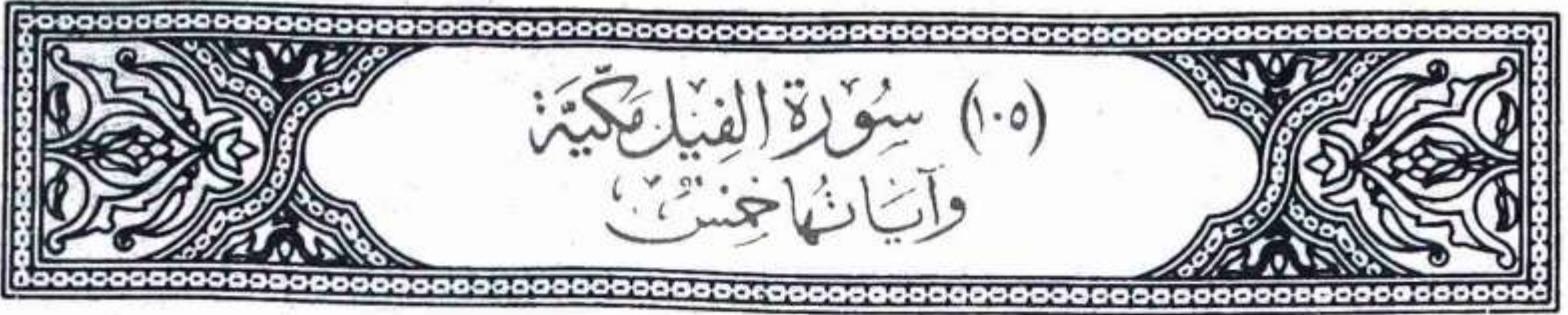 (١٠٥) سُورَة الفِيل مَكيَّة
وآيَاتُها خَمْسٌ